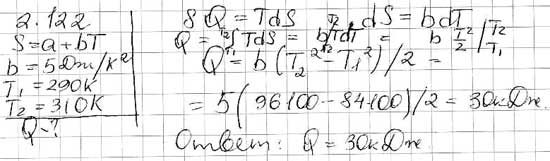 2.122
S=a+bT
b=5Дж/К²
T₁=290К
T₂=310К
Q-?
δQ=TdS, dS=bdT
Q=∫TdS=∫bTdT= b T²/2 |T₂ T₁
Q=b(T₂²-T₁²)/2=
=5(96100-84100)/2=30кДж.
Ответ: Q=30кДж.